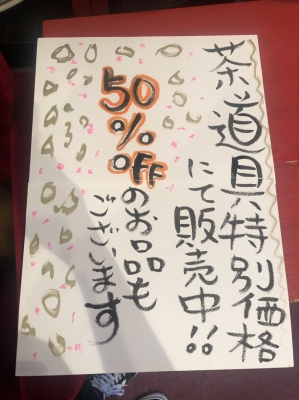 茶道具特別価格
にて販売中!!
50%OFFのお品も
ございます